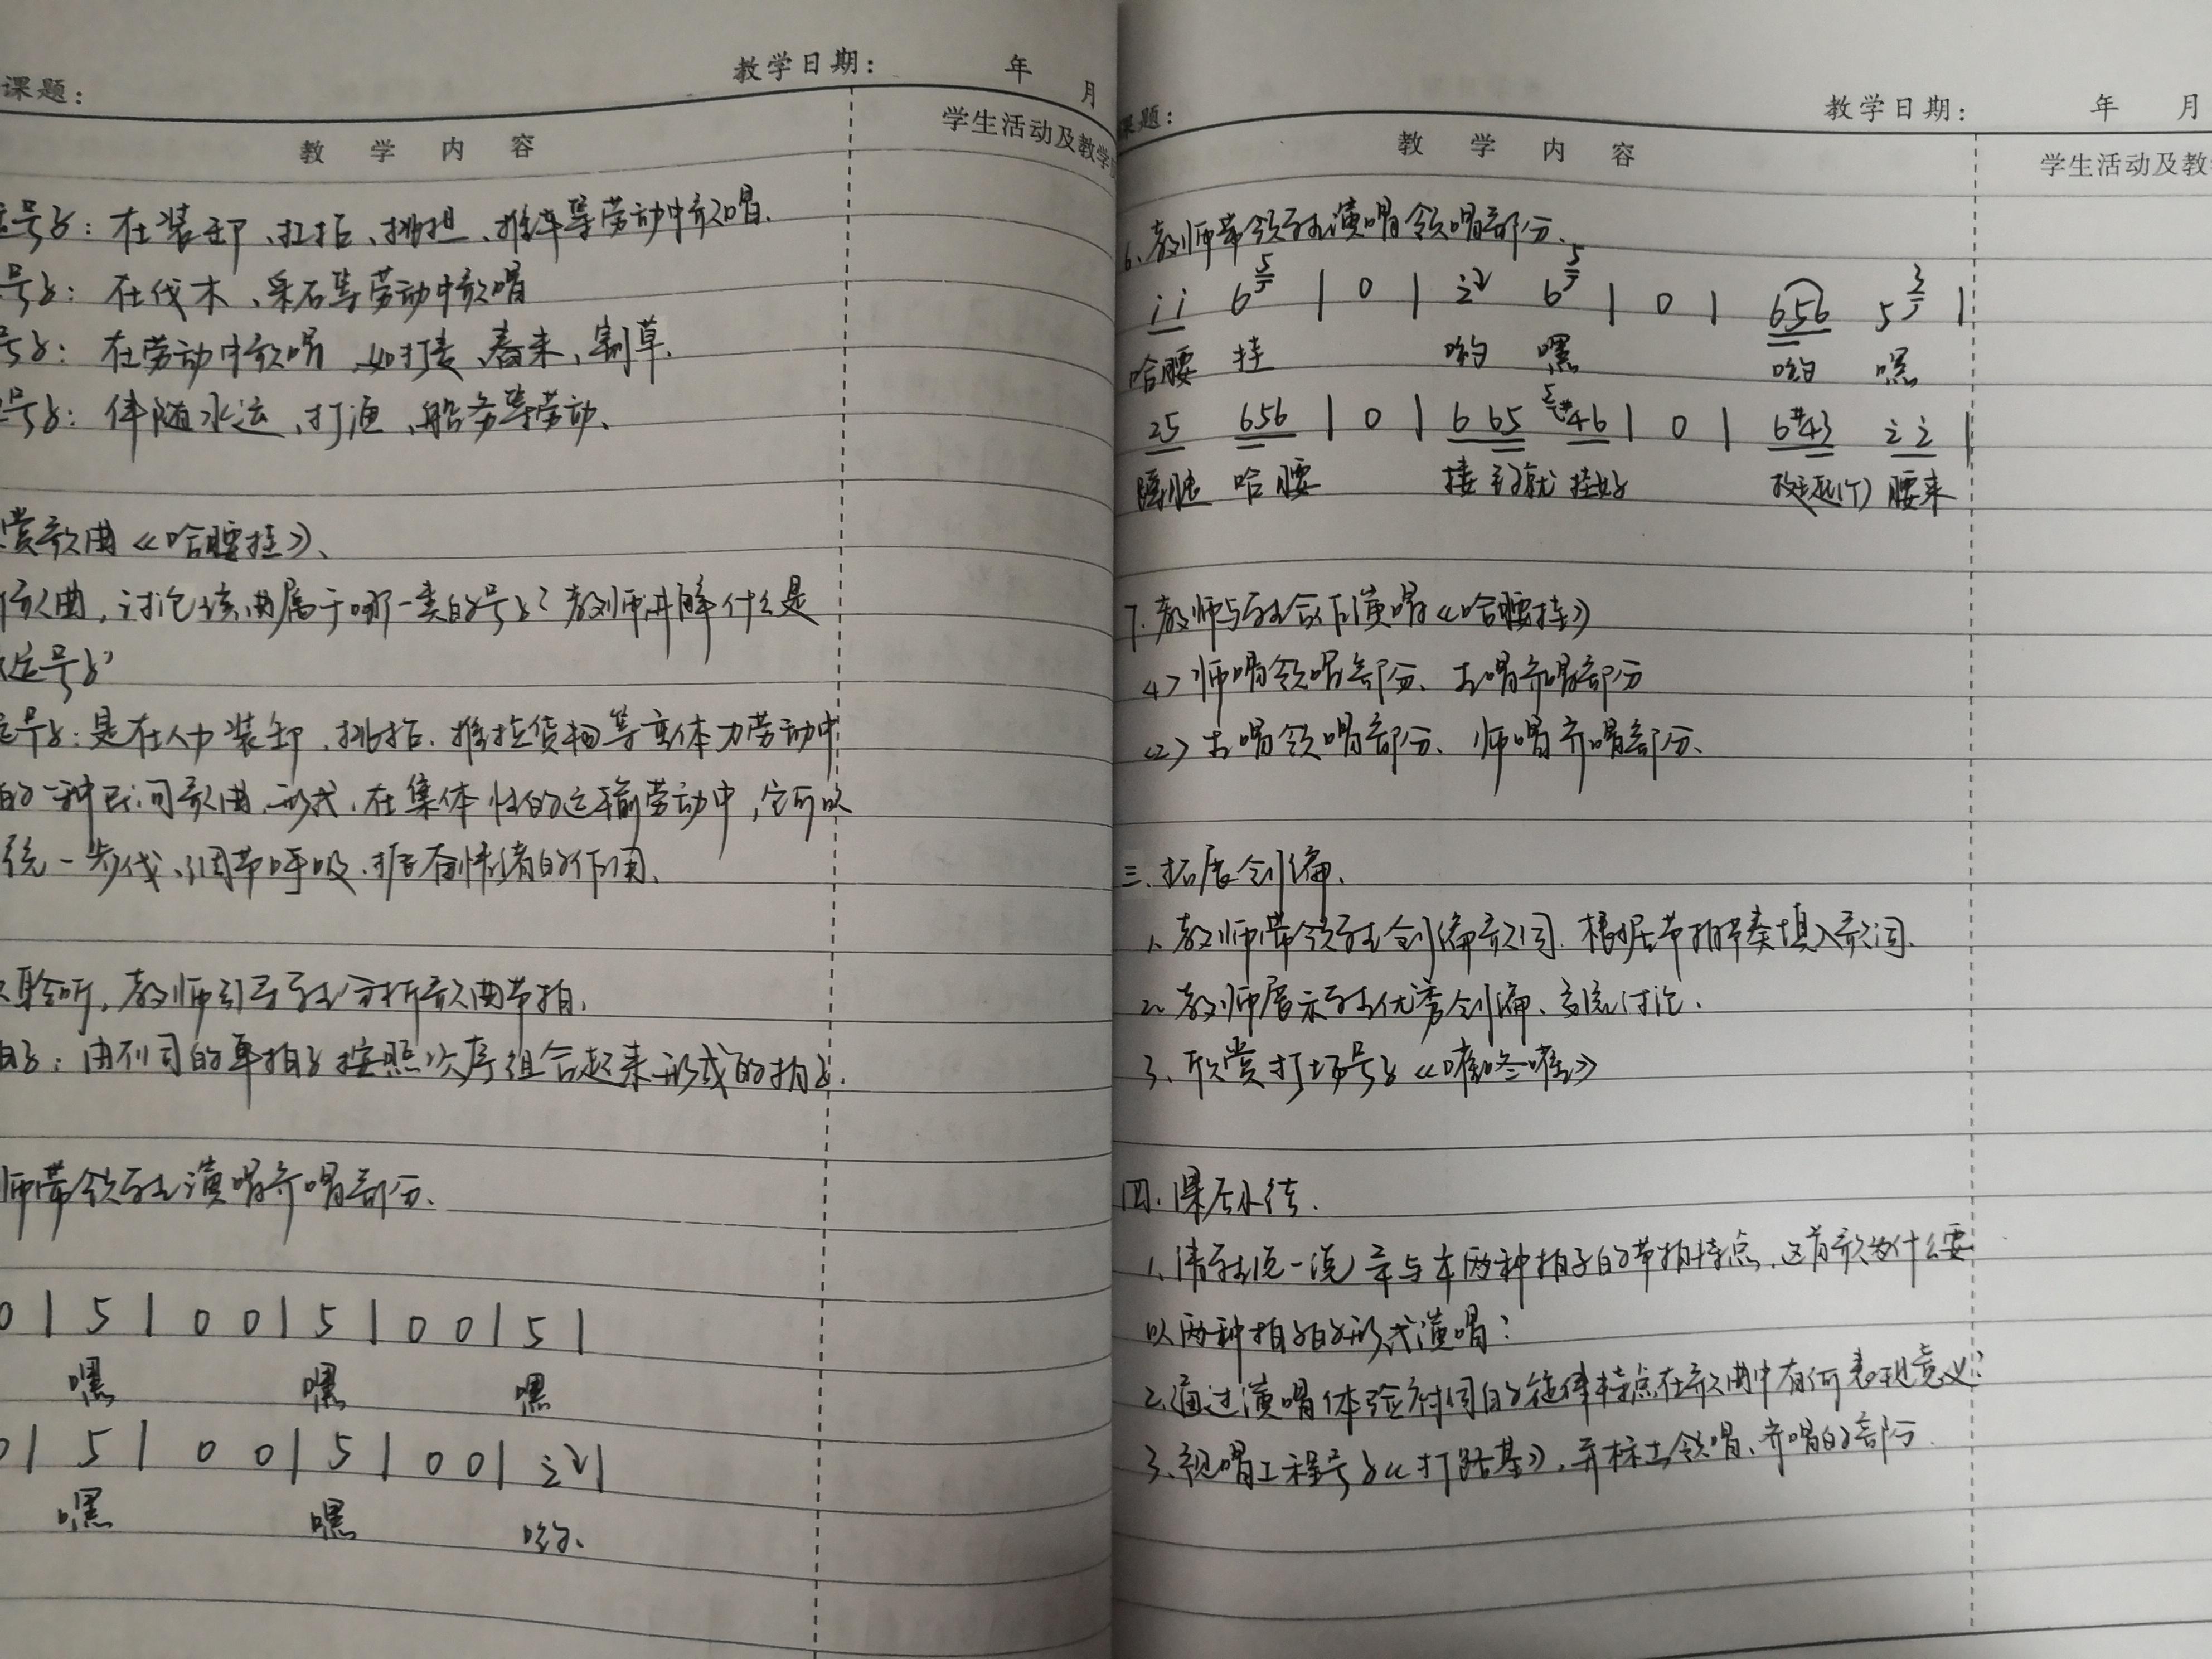 课题：
教学日期： 年 月
教 学 内 容
学生活动及教学
运号子：在装卸、扛抬、挑担、推车等劳动中歌唱.
号子：在伐木、采石等劳动中歌唱
号子：在劳动中歌唱，如打麦、舂米、割草.
号子：伴随水运、打渔、船务等劳动、
赏歌曲《哈腰挂》、
歌曲，讨论该曲属于哪一类的号子？教师讲解什么是
运号子’
运号子：是在人力装卸、挑抬、推拉货物等重体力劳动中
的一种民间歌曲形式，在集体性的运输劳动中，它可以
统一步伐、调节呼吸、振奋情绪的作用、
聆听，教师引导学生分析歌曲节拍.
拍子：由不同的单拍子按照次序组合起来形成的拍子.
师带领学生演唱齐唱部分、
0 | 5 | 0 0 | 5 | 0 0 | 5 |
嘿 嘿 嘿
0 | 5 | 0 0 | 5 | 0 0 | 2 |
嘿 嘿 哟、
课题：
教学日期： 年 月
教 学 内 容
学生活动及教
6、教师带领学生演唱领唱部分、
i i 6 5 | 0 | 2 6 5 | 0 | 656 5 3 |
哈腰 挂 哟 嘿 哟 嘿
25 656 | 0 | 6 65 #46 | 0 | 6#43 2 2 |
哈 腰 就 挂好 腰来
7. 教师与学生合作演唱《哈腰挂》
<1> 师唱领唱部分、生唱齐唱部分
<2> 生唱领唱部分、师唱齐唱部分、
三、拓展创编、
1、教师带领学生创编歌词. 根据节拍节奏填入歌词、
2、教师展示学生优秀创编、交流讨论.
3、欣赏打场号子《嘡咚嘡》
四、课后小结.
1、请学生说一说 与 两种拍子的节拍特点，这首歌为什么要
以两种拍子的形式演唱？
2、通过演唱体验 的旋律特点在歌曲中有何表现意义？
3、视唱工程号子《打路基》，并标出领唱、齐唱的部分